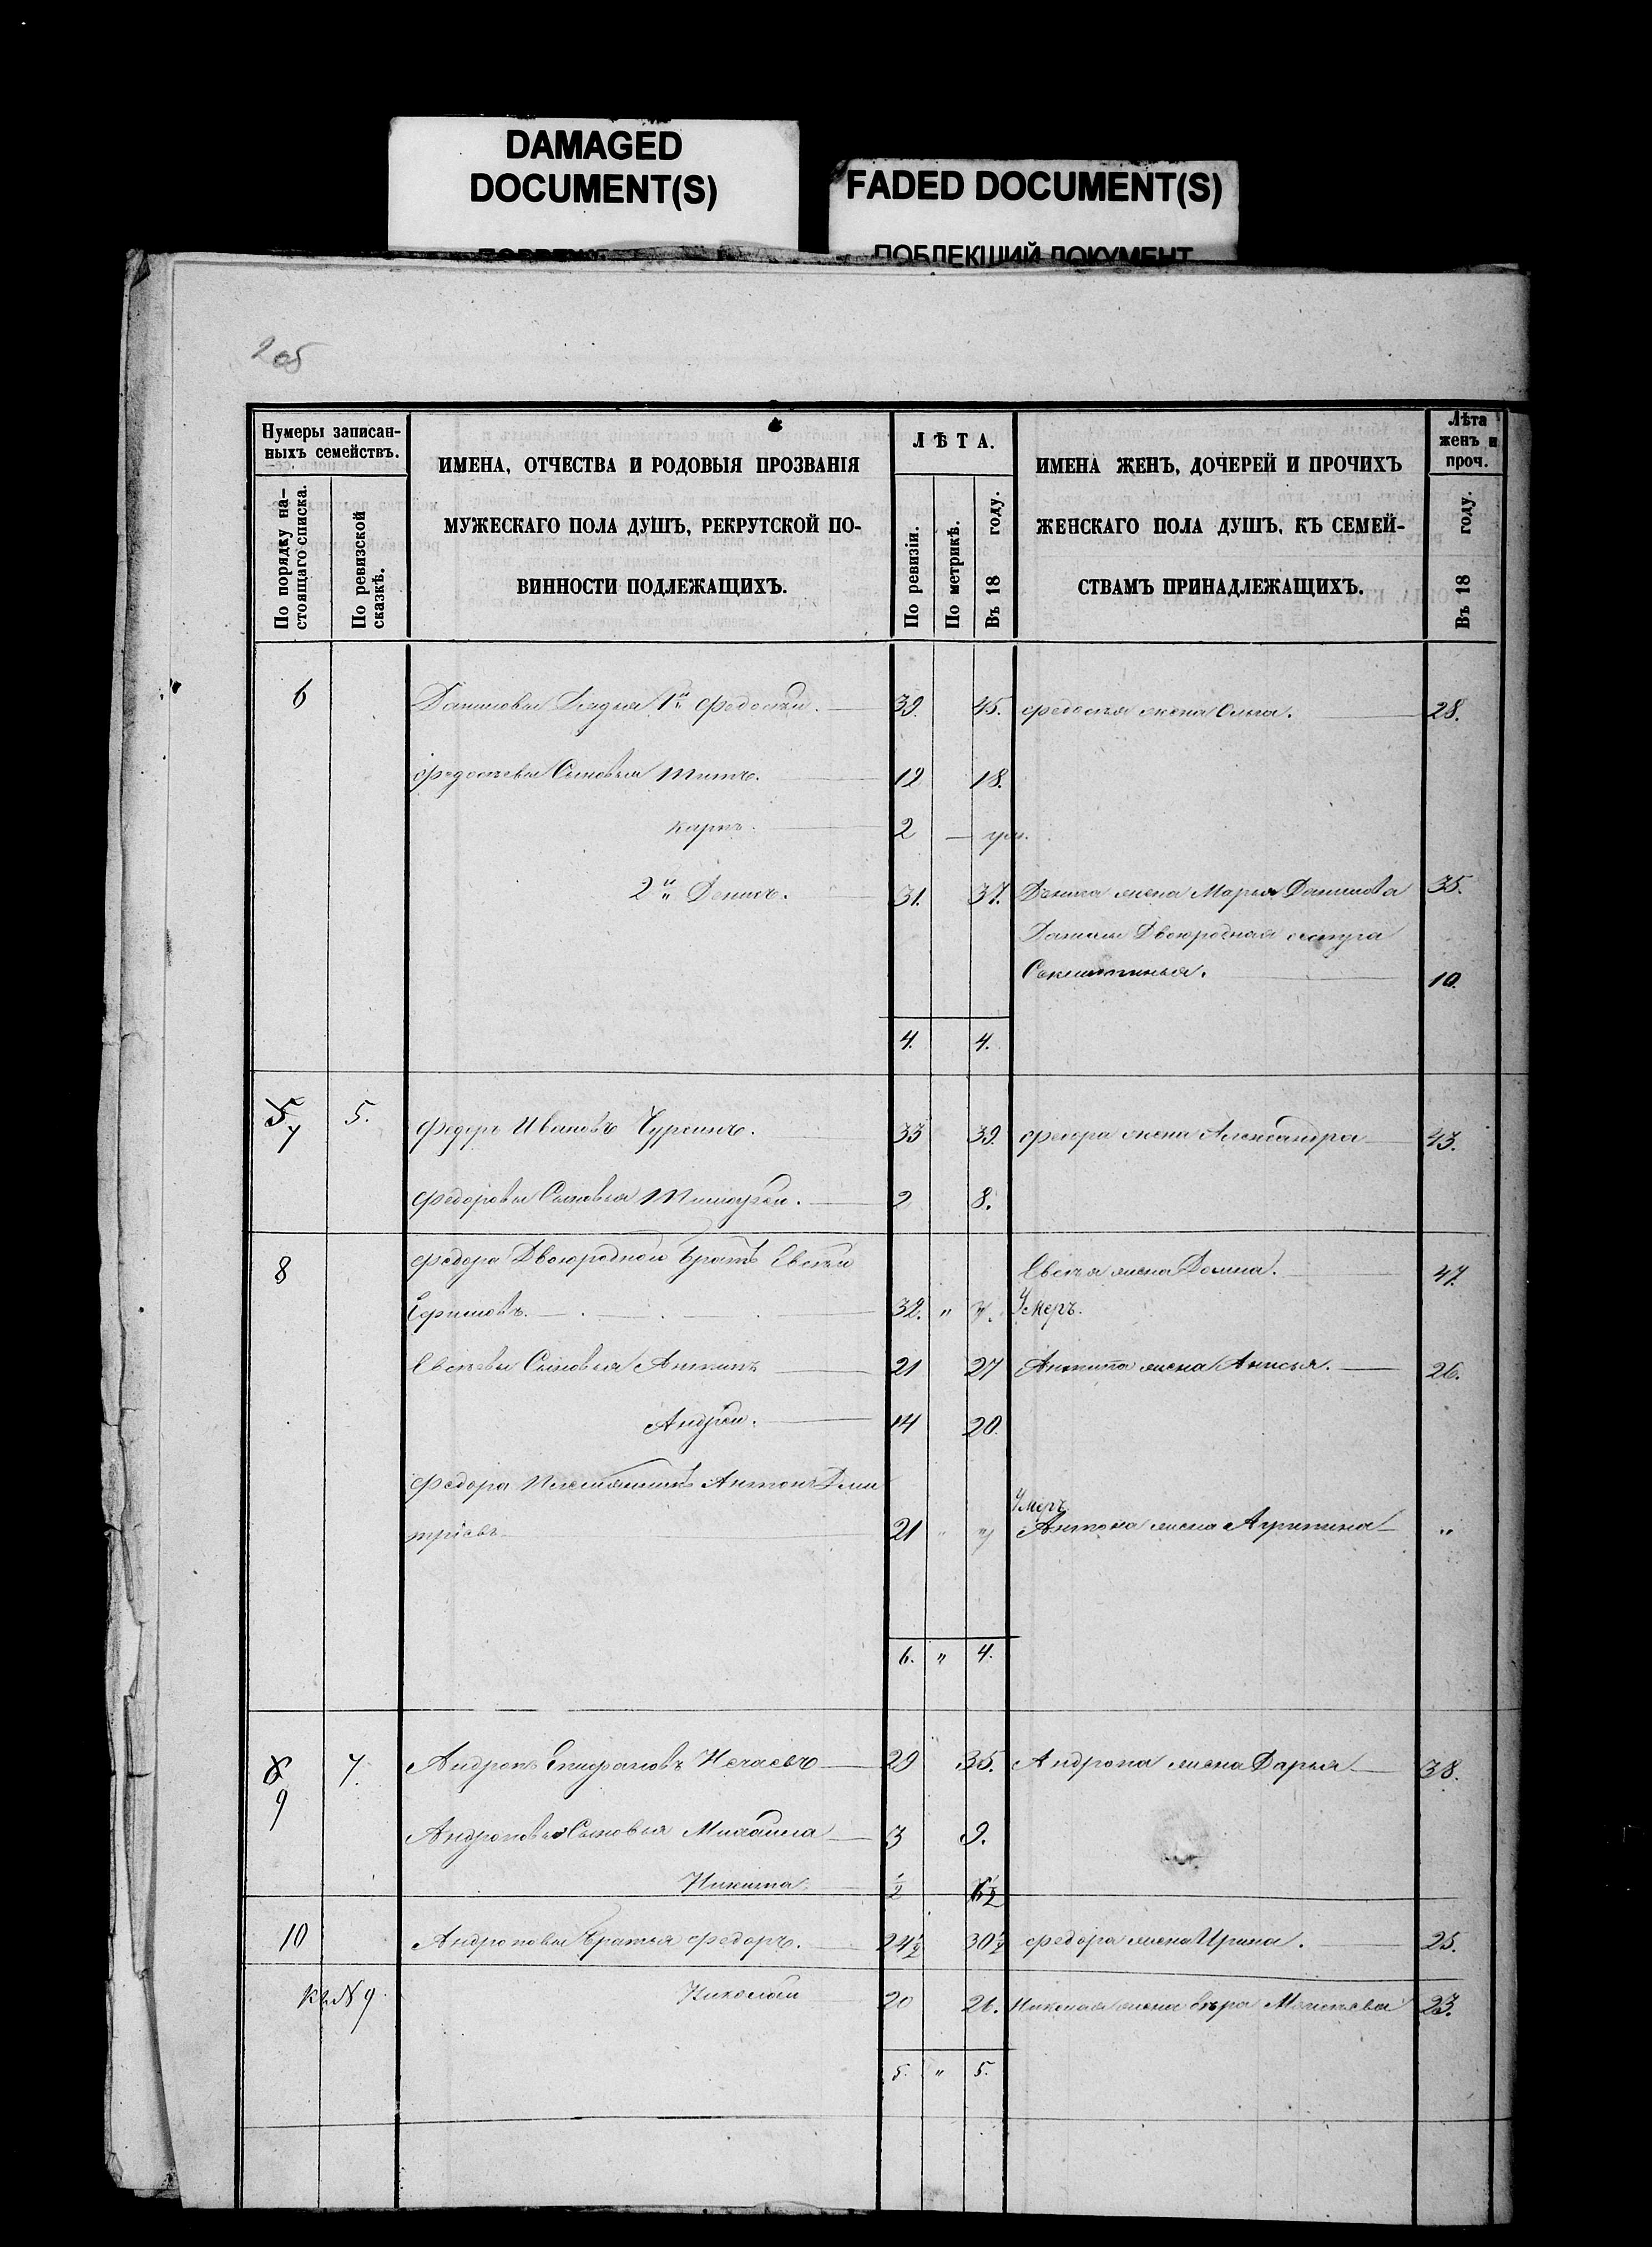 DAMAGED
DOCUMENT(S)
FADED DOCUMENT(S)
ПОБЛЕКШИЙ ДОКУМЕНТ
2 об
Нумеры записан-
ныхъ семействъ.
По порядку на-
стоящаго списка.
По ревизской
сказкѣ.
ИМЕНА, ОТЧЕСТВА И РОДОВЫЯ ПРОЗВАНІЯ
МУЖЕСКАГО ПОЛА ДУШЪ, РЕКРУТСКОЙ ПО-
ВИННОСТИ ПОДЛЕЖАЩИХЪ.
ЛѢТА.
По ревизіи.
По метрикѣ.
Въ 18 году.
ИМЕНА ЖЕНЪ, ДОЧЕРЕЙ И ПРОЧИХЪ
ЖЕНСКАГО ПОЛА ДУШЪ, КЪ СЕМЕЙ-
СТВАМЪ ПРИНАДЛЕЖАЩИХЪ.
Лѣта
женъ и
проч.
Въ 18 году.
6 Даниловы Дядья 1й Федосѣй. 39. 45. Федосѣя жена Ольга. 28.
Федосѣевы Сыновья Титъ. 12 18.
Карпъ. 2 — ум.
2й Денисъ. 31. 37. Дениса жена Марья Данилова 35.
Данилы Двоюродная сестра
10.
4. 4.
5 7 5. Федоръ Ивановъ Чуркинъ. 33 39. Федора жена Александра 43.
Федоровы Сыновья Тимофей. 2 8.
8 Федора Двоюродной братъ Евсѣй Евсѣя жена Домна. 47.
Ефимовъ. 32. " " Умеръ.
Евсѣевы Сыновья Антипъ 21 27 Антипа жена Анисья. 26.
Андрей. 14 20.
Федора Племянникъ Антонъ Дми
Умеръ
тріевъ 21 " " Антона жена Агрипина "
6. " 4.
8 9 7. Андронъ Епифановъ Нечаевъ 29 35. Андрона жена Дарья 38.
Андроновы Сыновья Михайла 3 9.
Никита. 1/2 6 1/2
10 Андроновы братья Федоръ. 24 1/2 30 1/2 Федора жена Ирина. 25.
Къ № 9. Николай 20 26. Николая жена Вѣра Моисѣева 23.
5. " 5.